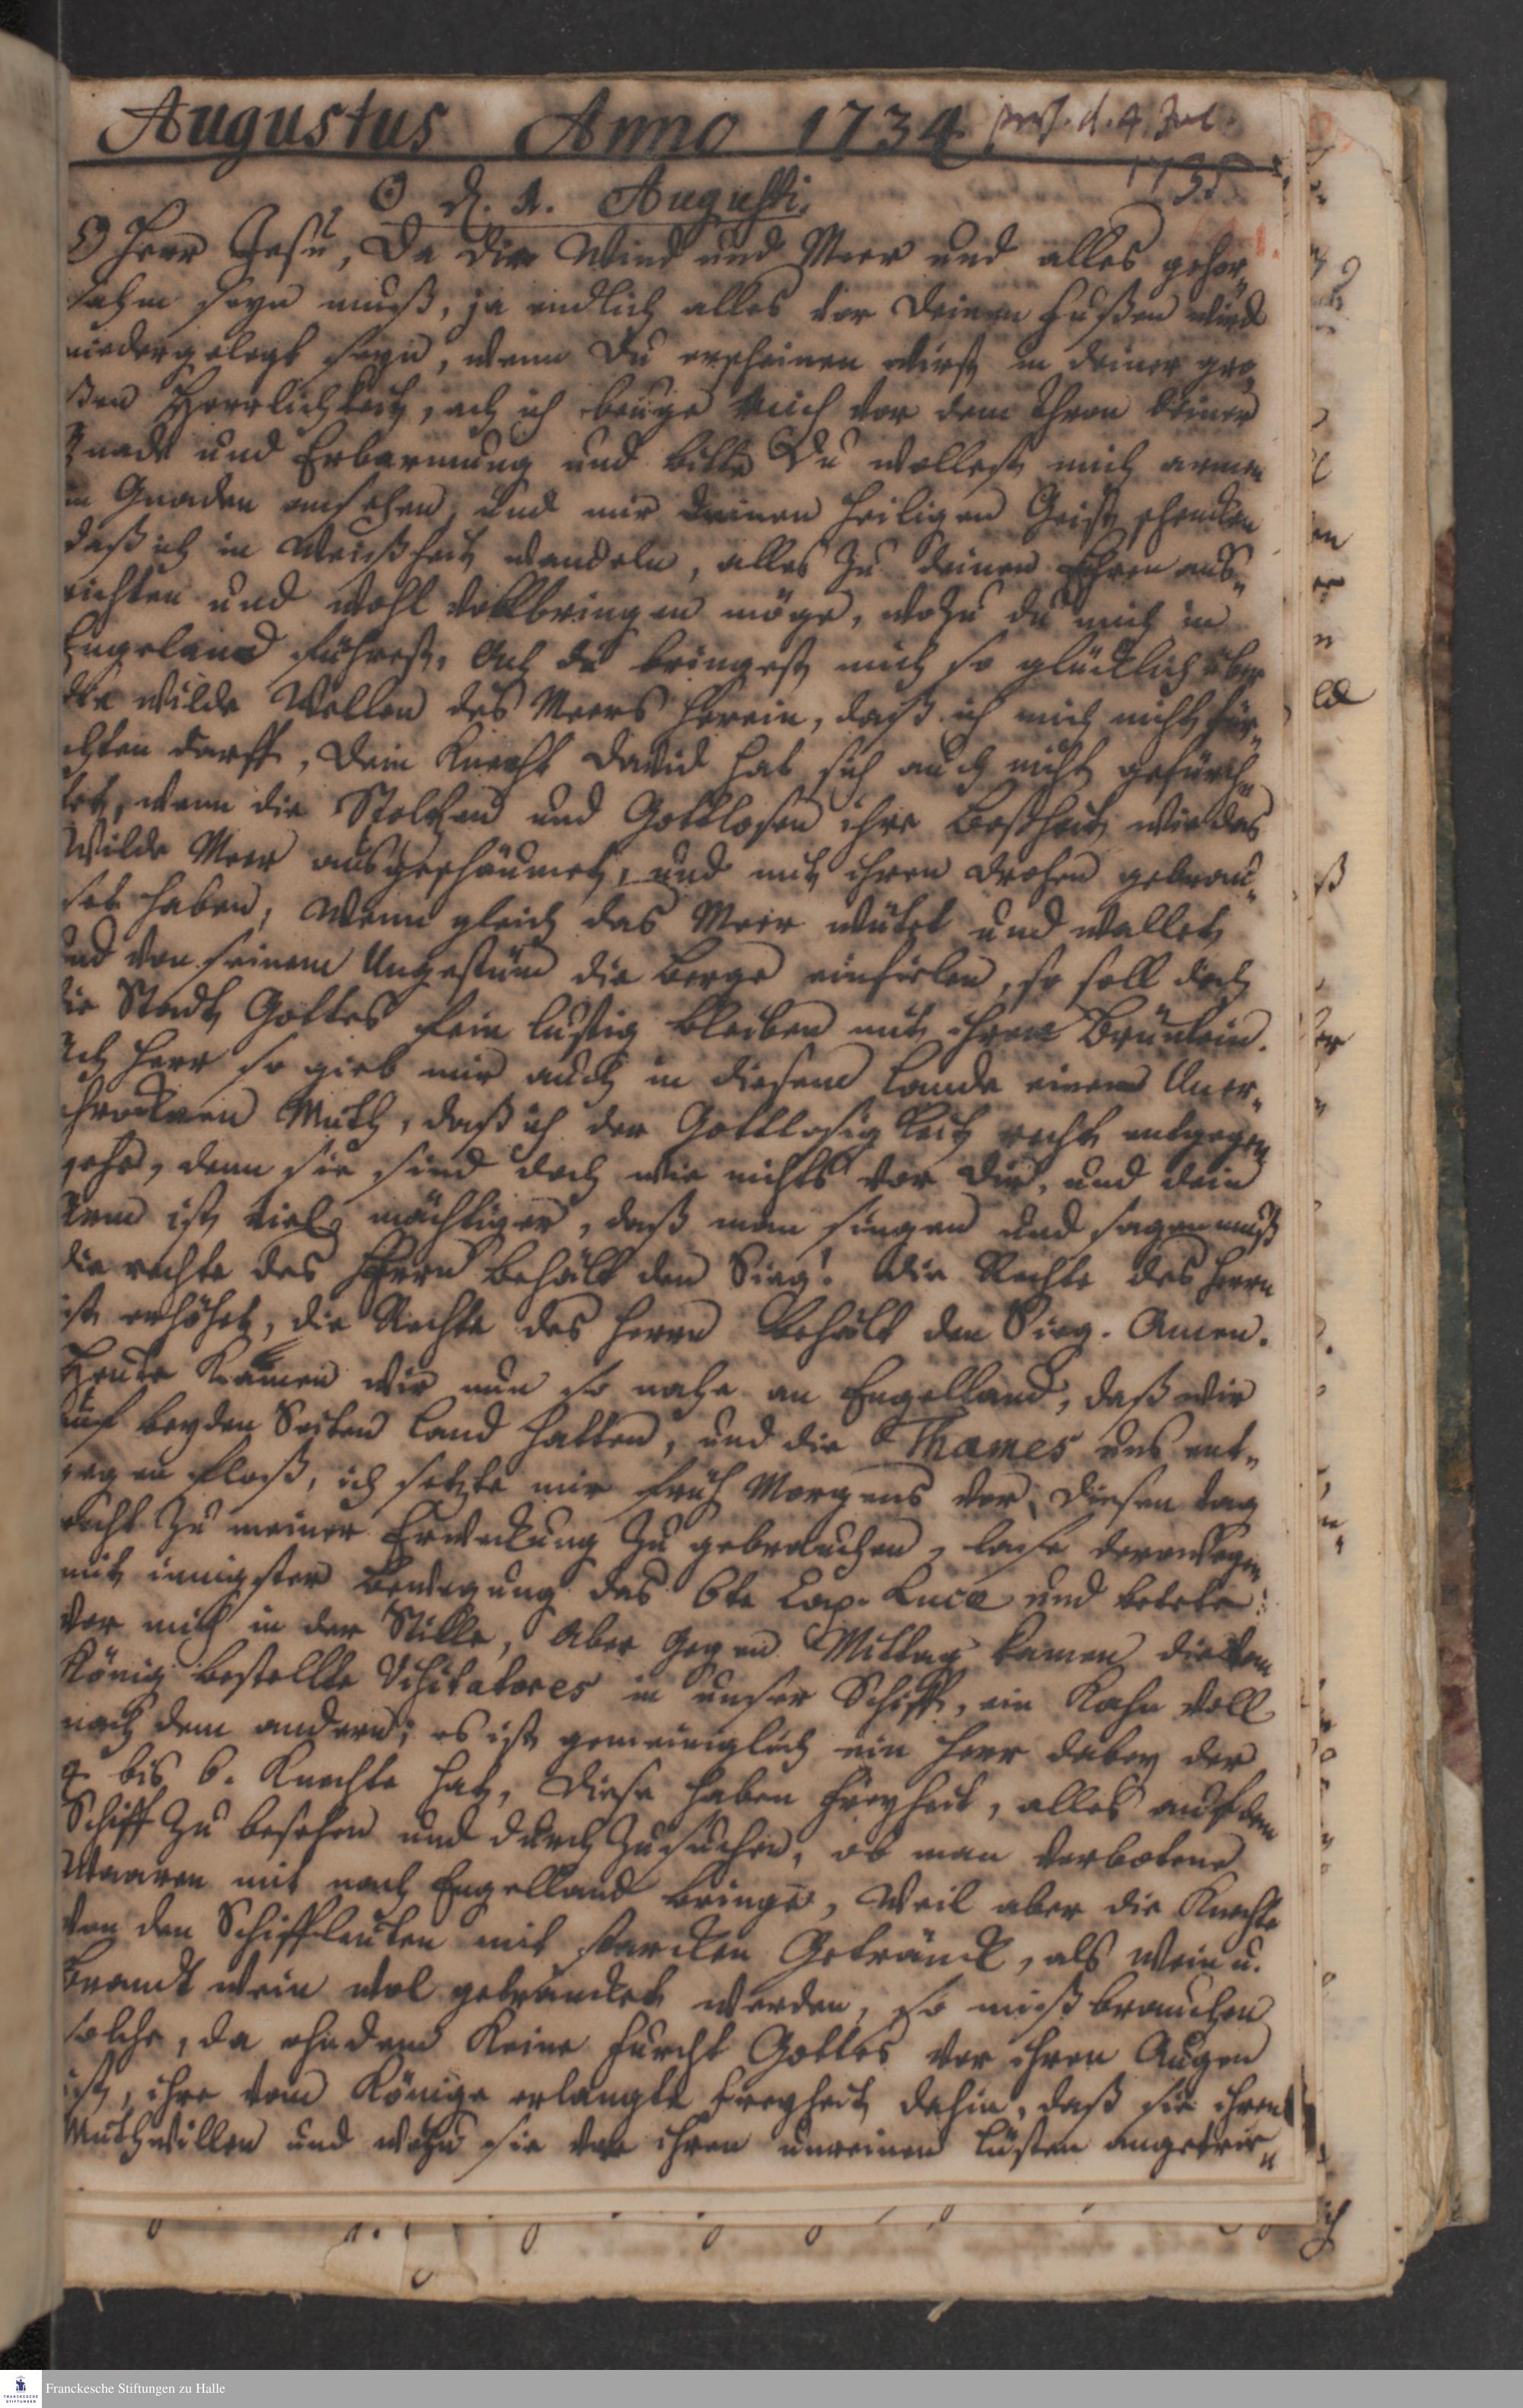 Augustus Anno 1734. præs. d. 4. Jul.
1735
☉ d. 1. Augusti.
O Herr Jesu, Da dir Wind und Meer und alles gehor„
sahm seyn muß, ja endlich alles vor deinen Füßen wird
niedergelegt seyn, wenn Du erscheinen wirst in deiner gro„
ßen Herrlichkeit, ach ich beuge mich vor dem Thron deiner
Gnade und Erbarmung und bitte Du wollest mich armen
in Gnaden ansehen, und mir deinen heiligen Geist schencken
daß ich in Weißheit wandeln, alles zu deinen Ehren aus„
richten und wohl vollbringen möge, wozu du mich in
Engeland führest. Ach du bringest mich so glücklich über
die wilde Wellen des Meers herein, daß ich mich nicht für„
chten darff, Dein Knecht David hat sich auch nicht gefürch„
tet, wenn die Stoltzen und Gottlosen ihre Boßheit wie das
Wilde Meer ausgeschäumet, und mit ihren drohen gebrau„
set haben, Wenn gleich das Meer wütet und wallet
und von seinem Ungestüm die Berge einfielen, so soll doch
die Stadt Gottes fein lustig bleiben mit ihren Brünlein.
Ach Herr so gieb mir auch in diesem Lande einen Uner„
schrockenen Muth, daß ich der Gottlosigkeit recht entgegen
gehe, denn sie sind doch wie nichts vor dir, und dein
Arm ist viel mächtiger, daß man singen und sagen muß
die rechte des Herrn behält den Sieg! die Rechte des Herrn
ist erhöhet, die Rechte des Herrn behält den Sieg. Amen.
Heute kamen wir nun so nahe an Engelland, daß wir
auf beyden Seiten Land hatten, und die Thames uns ent„
gegen floß, ich setzte mir früh Morgens vor, diesen tag
recht zu meiner Erweckung zu gebrauchen, lase derowegen
mit innigster Bewegung das 6te Cap. Lucæ und betete
vor mich in der Stille, Aber gegen Mittag kamen die vom
König bestellte Visitatores in unser Schiff, ein Kahn voll
nach dem andern; es ist gemeiniglich ein Herr dabey der
4 bis 6. Knechte hat, diese haben Freyheit, alles auf dem
Schiff zu besehen und durch zusuchen, ob man verbotene
Waaren mit nach Engelland bringe, Weil aber die Knechte
von den Schiffleuten mit starcken Geträncke, als Wein u.
Brandtwein wol geträncket werden, so mißbrauchen
solche, da ohndem keine Furcht Gottes vor ihren Augen
ist, ihre vom Könige erlangte Freyheit dahin, daß sie ihren
Muthwillen und wozu sie von ihren unreinen Lüsten angetrie„
Franckesche Stiftungen zu Halle